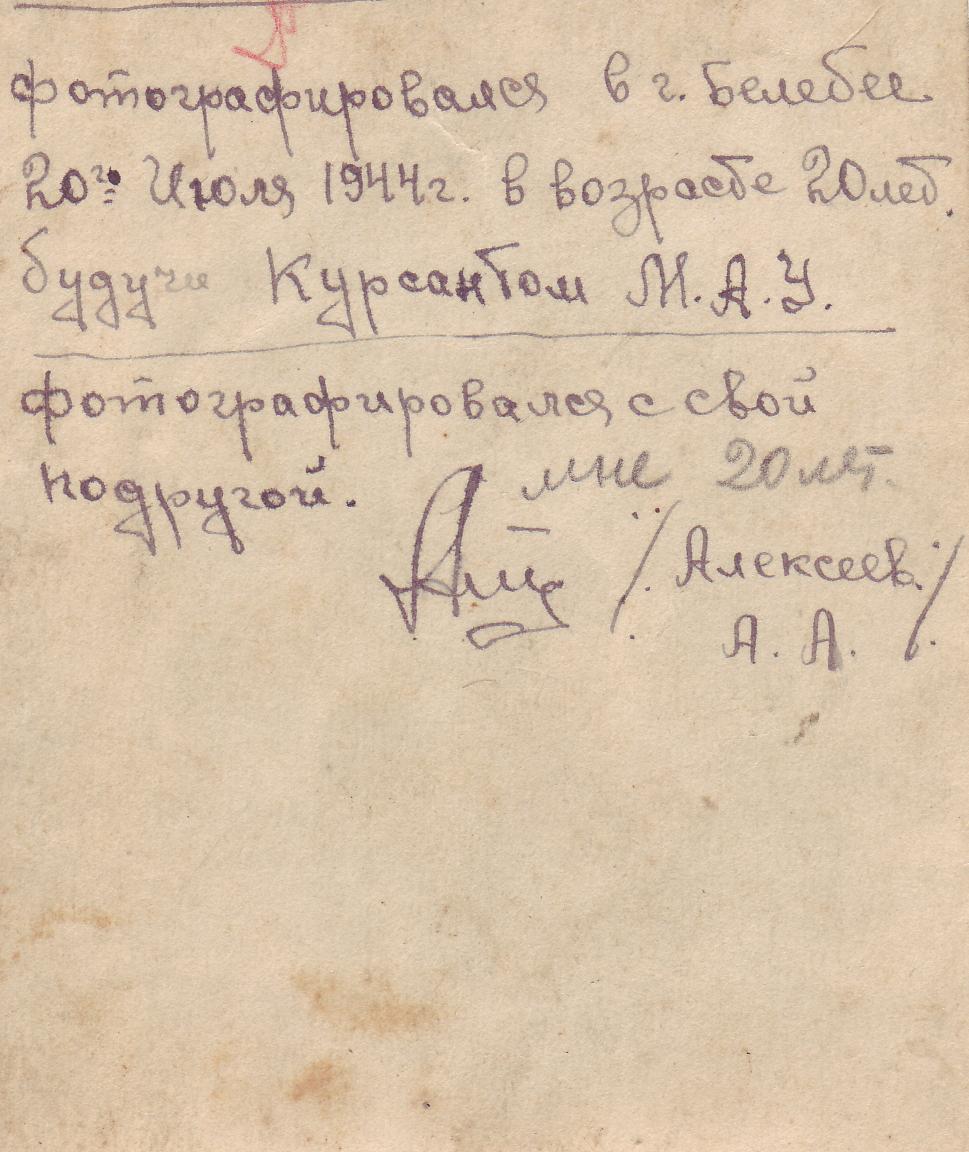 фотографировался в г. Белебее
20го Июля 1944 г. в возрасте 20 лет.
будучи Курсантом М.А.У.
фотографировался с свой
подругой.
мне 20 лет.
/Алексеев./
А. А.